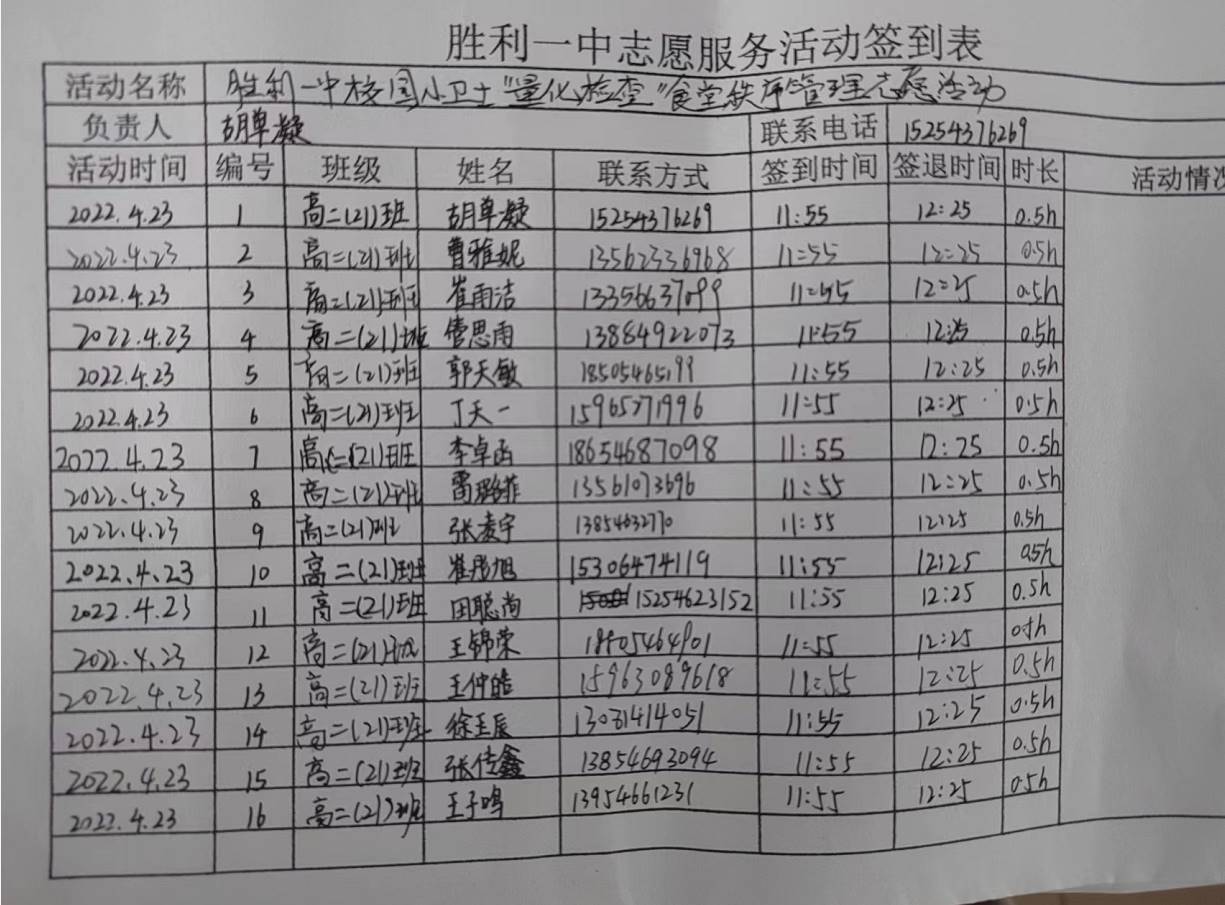 胜利一中志愿服务活动签到表
活动名称 胜利一中校园小卫士"量化检查"食堂秩序管理志愿活动
负责人 胡草凝 联系电话 15254376269
活动时间 编号 班级 姓名 联系方式 签到时间 签退时间 时长 活动情况
2022.4.23 1 高二(21)班 胡草凝 15254376269 11:55 12:25 0.5h
2022.4.23 2 高二(21)班 曹雅妮 13562336968 11:55 12:25 0.5h
2022.4.23 3 高二(21)班 崔雨洁 13356637099 11:55 12:25 0.5h
2022.4.23 4 高二(21)班 管思雨 13884922073 11:55 12:25 0.5h
2022.4.23 5 高二(21)班 郭天敏 18505465199 11:55 12:25 0.5h
2022.4.23 6 高二(21)班 丁天一 15965271996 11:55 12:25 0.5h
2022.4.23 7 高二(21)班 李卓函 18654687098 11:55 12:25 0.5h
2022.4.23 8 高二(21)班 13561073696 11:55 12:25 0.5h
2022.4.23 9 高二(21)班 张凌宇 13854632770 11:55 12:25 0.5h
2022.4.23 10 高二(21)班 15306474119 11:55 12:25 0.5h
2022.4.23 11 高二(21)班 田聪尚 15254623152 11:55 12:25 0.5h
2022.4.23 12 高二(21)班 王锦荣 11:55 12:25 0.5h
2022.4.23 13 高二(21)班 王仲皓 15963089618 11:55 12:25 0.5h
2022.4.23 14 高二(21)班 徐玉辰 13081414051 11:55 12:25 0.5h
2022.4.23 15 高二(21)班 张佳鑫 13854693094 11:55 12:25 0.5h
2022.4.23 16 高二(21)班 王子鸣 13954661231 11:55 12:25 0.5h